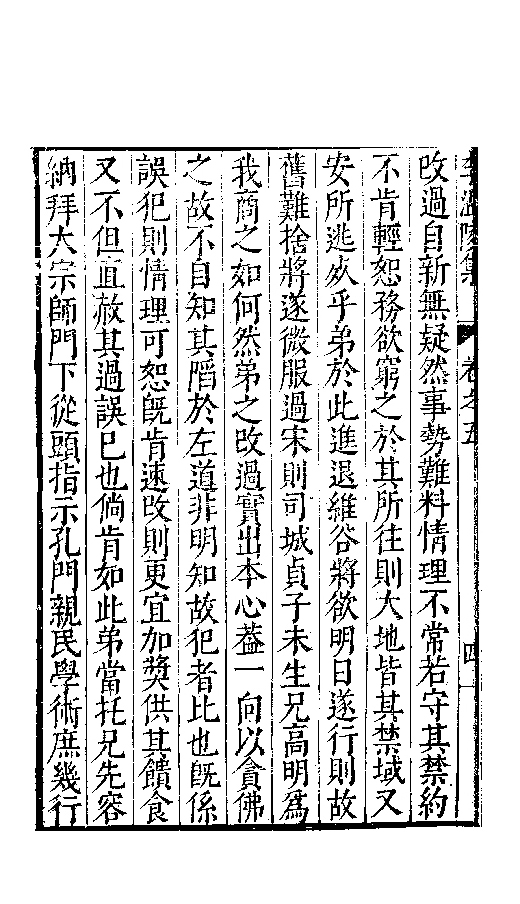 李溫陵集
卷之五
四
改過自新無疑然事勢難料情理不常若守其禁約
不肯輕恕務欲窮之於其所往則大地皆其禁域又
安所逃死乎弟於此進退維谷將欲明日遂行則故
舊難捨將遂微服過宋則司城貞子未生兄高明爲
我商之如何然弟之改過實出本心葢一向以貪佛
之故不自知其䧟於左道非明知故犯者比也旣係
誤犯則情理可恕旣肯速改則更宜加奬供其饋食
又不但直赦其過誤已也倘肯如此弟當托兄先容
納拜大宗師門下從頭指示孔門親民學術庶幾行